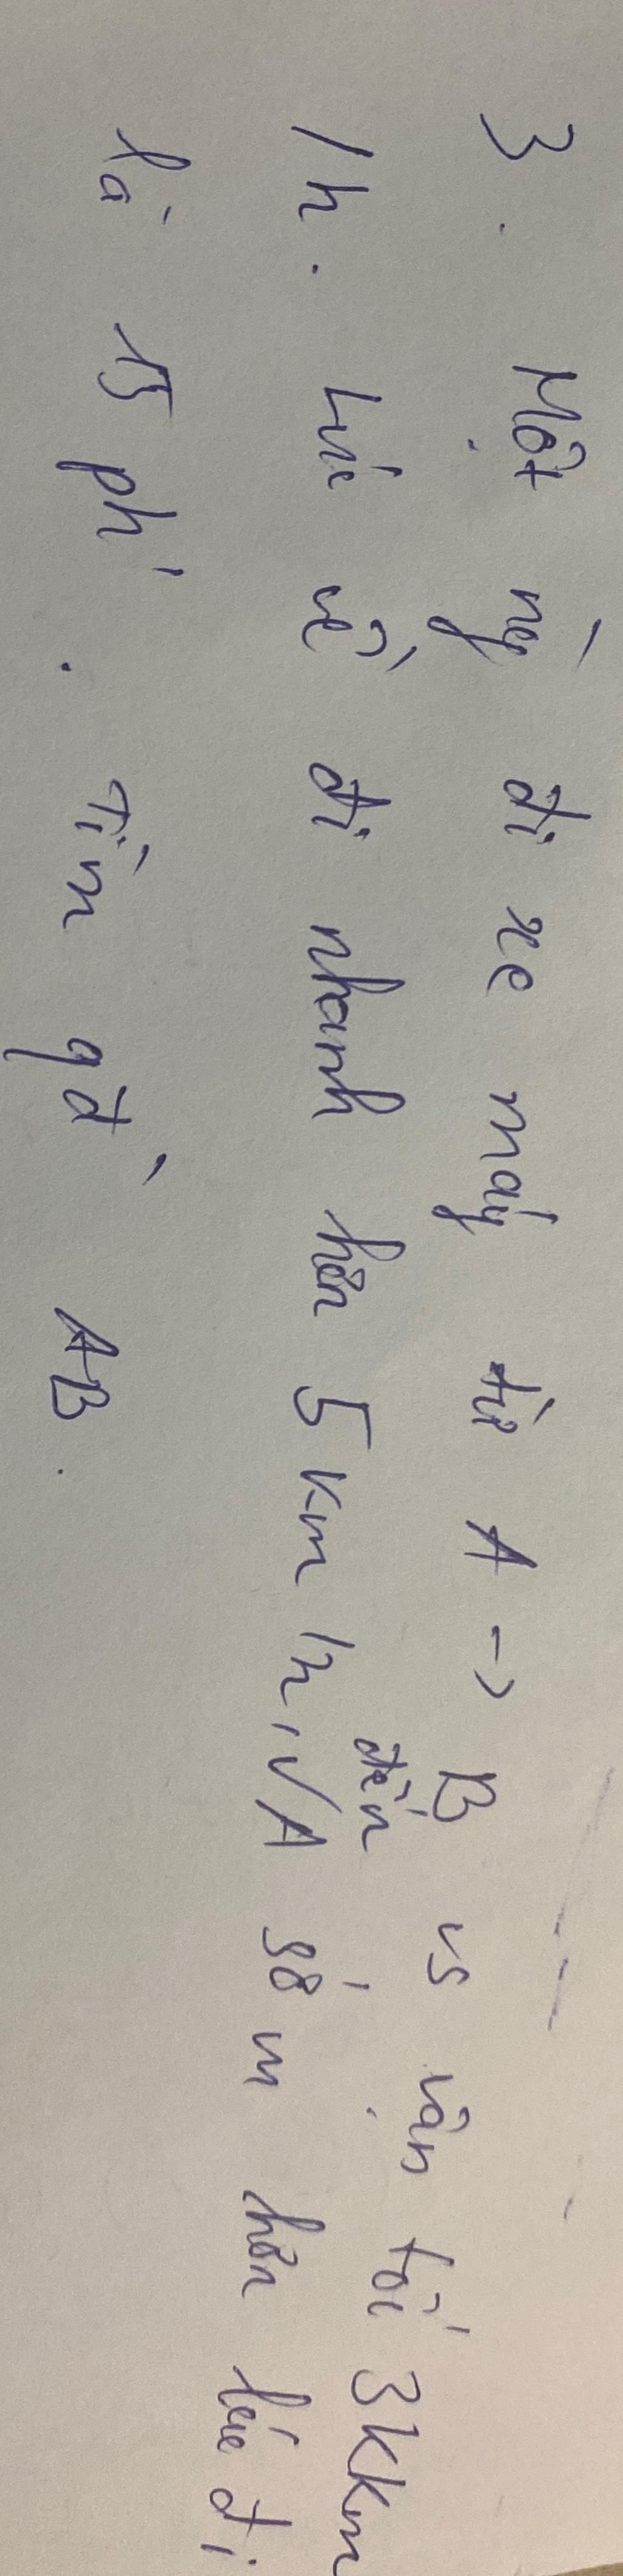 3. Một ng̀ đi xe máy từ A -> B vs vận tốc 3kkm
/h. Lúc về đi nhanh hơn 5 km/h, √A đến sớm hơn lúc đi
là 15 ph'. Tìm qđ̀ AB.